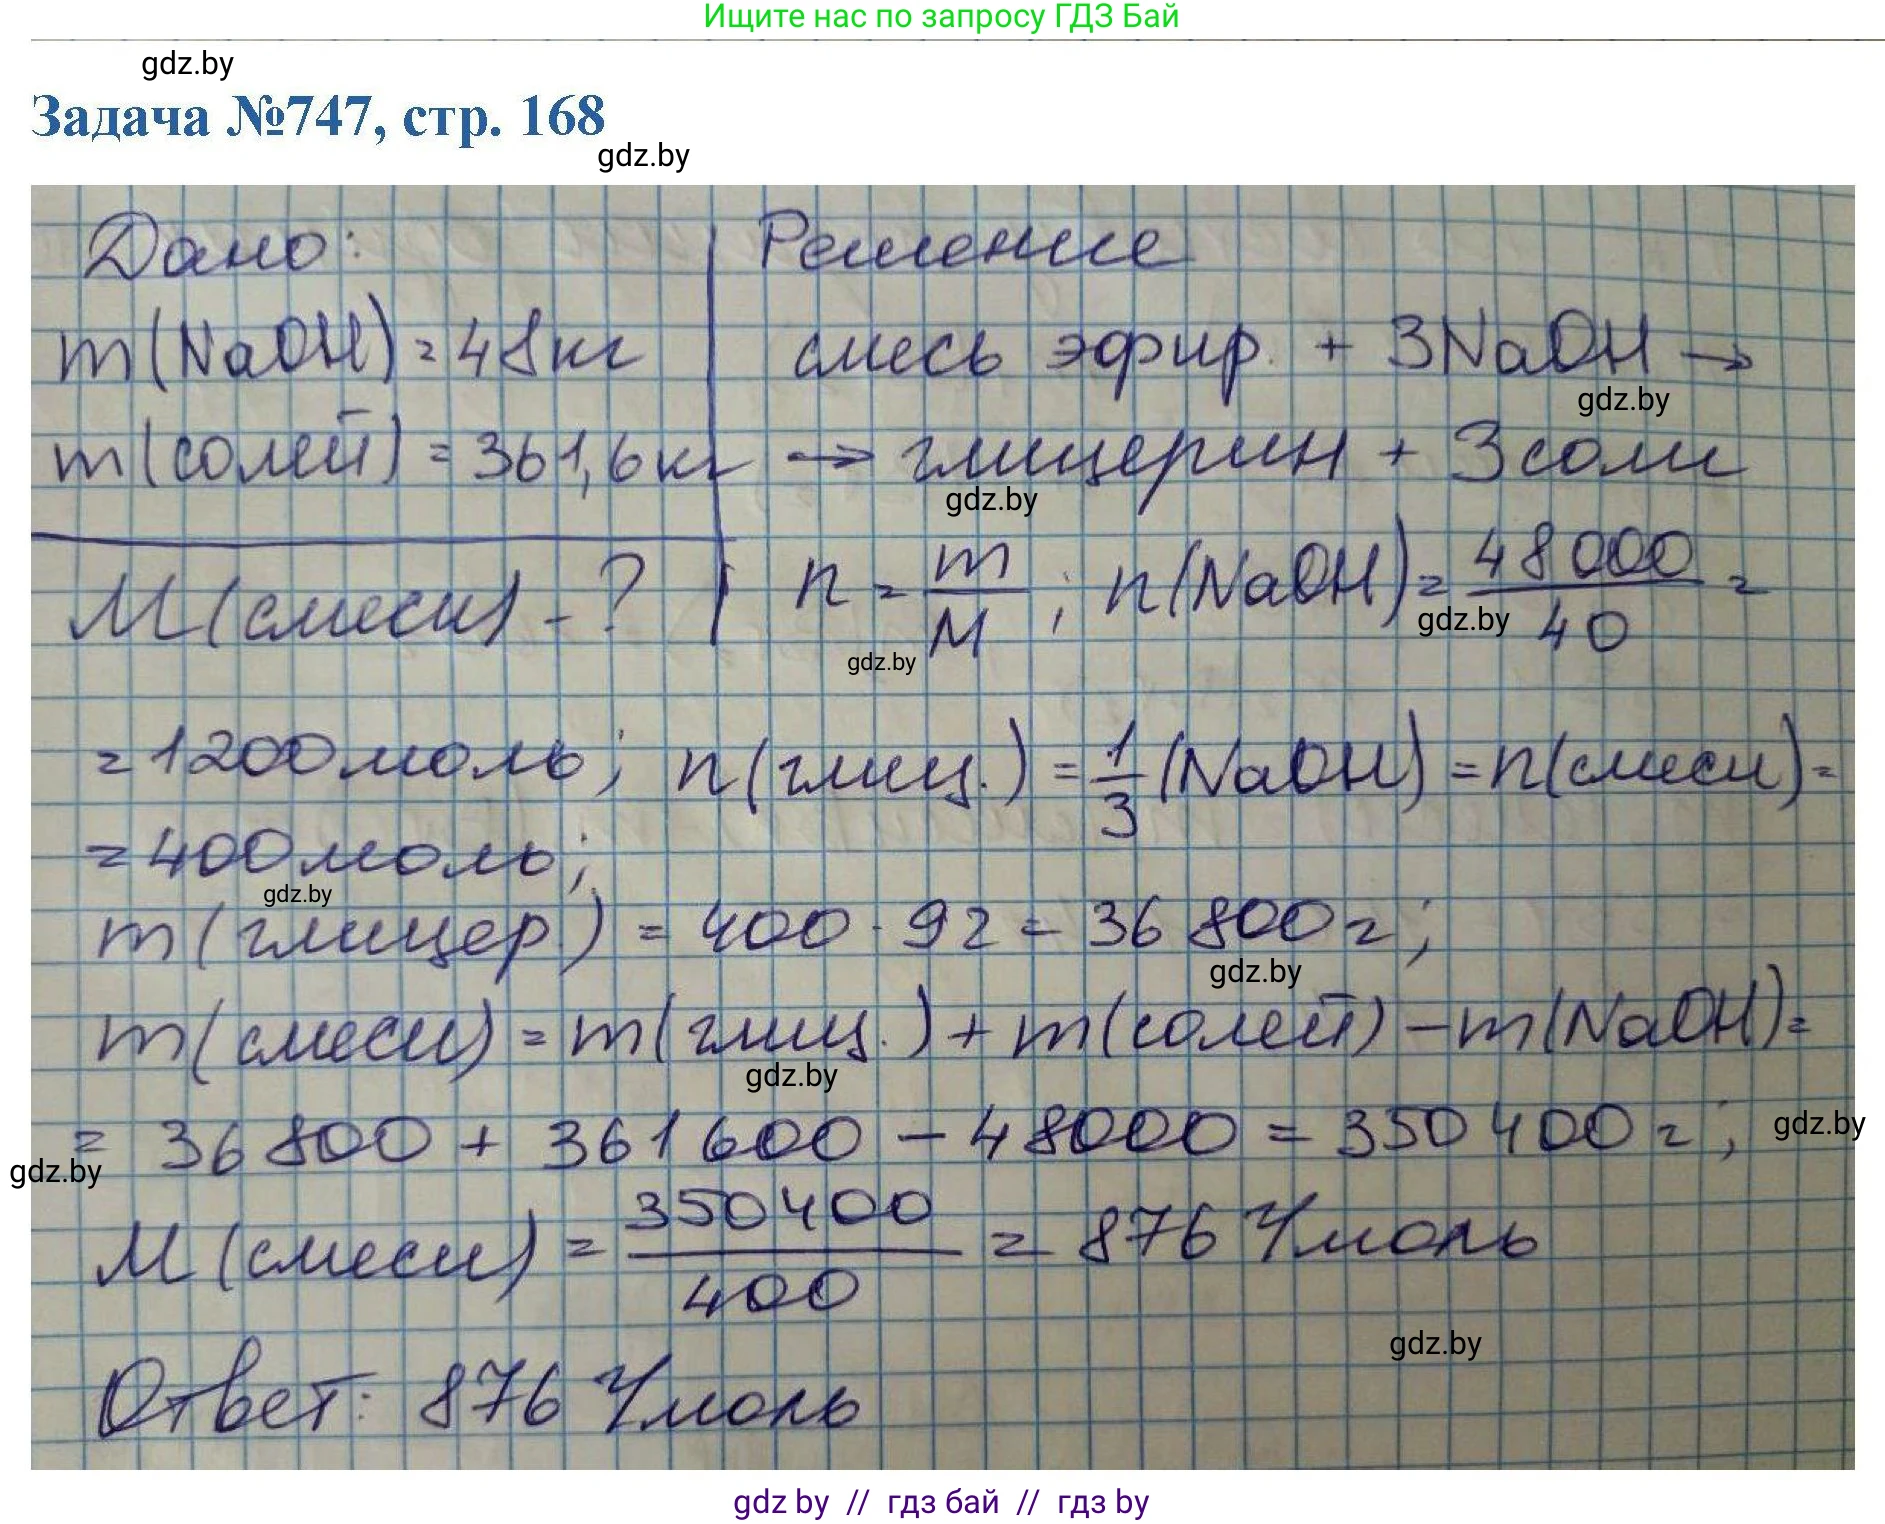 Ищите нас по запросу ГДЗ Бай
gdz.by
Задача №747, стр. 168
gdz.by
Дано:
Решение
m(NaOH)=48кг
смесь эфир. + 3NaOH →
gdz.by
m(солей)=361,6кг
→ глицерин + 3соли
gdz.by
M(смеси)-?
n = m/M ; n(NaOH)= 48000/40 =
gdz.by
gdz.by
=1200моль; n(глиц.)=1/3(NaOH)=n(смеси)=
=400моль;
gdz.by
m(глицер.) = 400·92 = 36800г;
gdz.by
m(смеси)=m(глиц.)+m(солей)-m(NaOH)=
gdz.by
= 36800 + 361600 - 48000 = 350400г;
gdz.by
gdz.by
M(смеси) = 350400/400 = 876 г/моль
gdz.by
Ответ: 876 г/моль
gdz by // гдз бай // гдз by